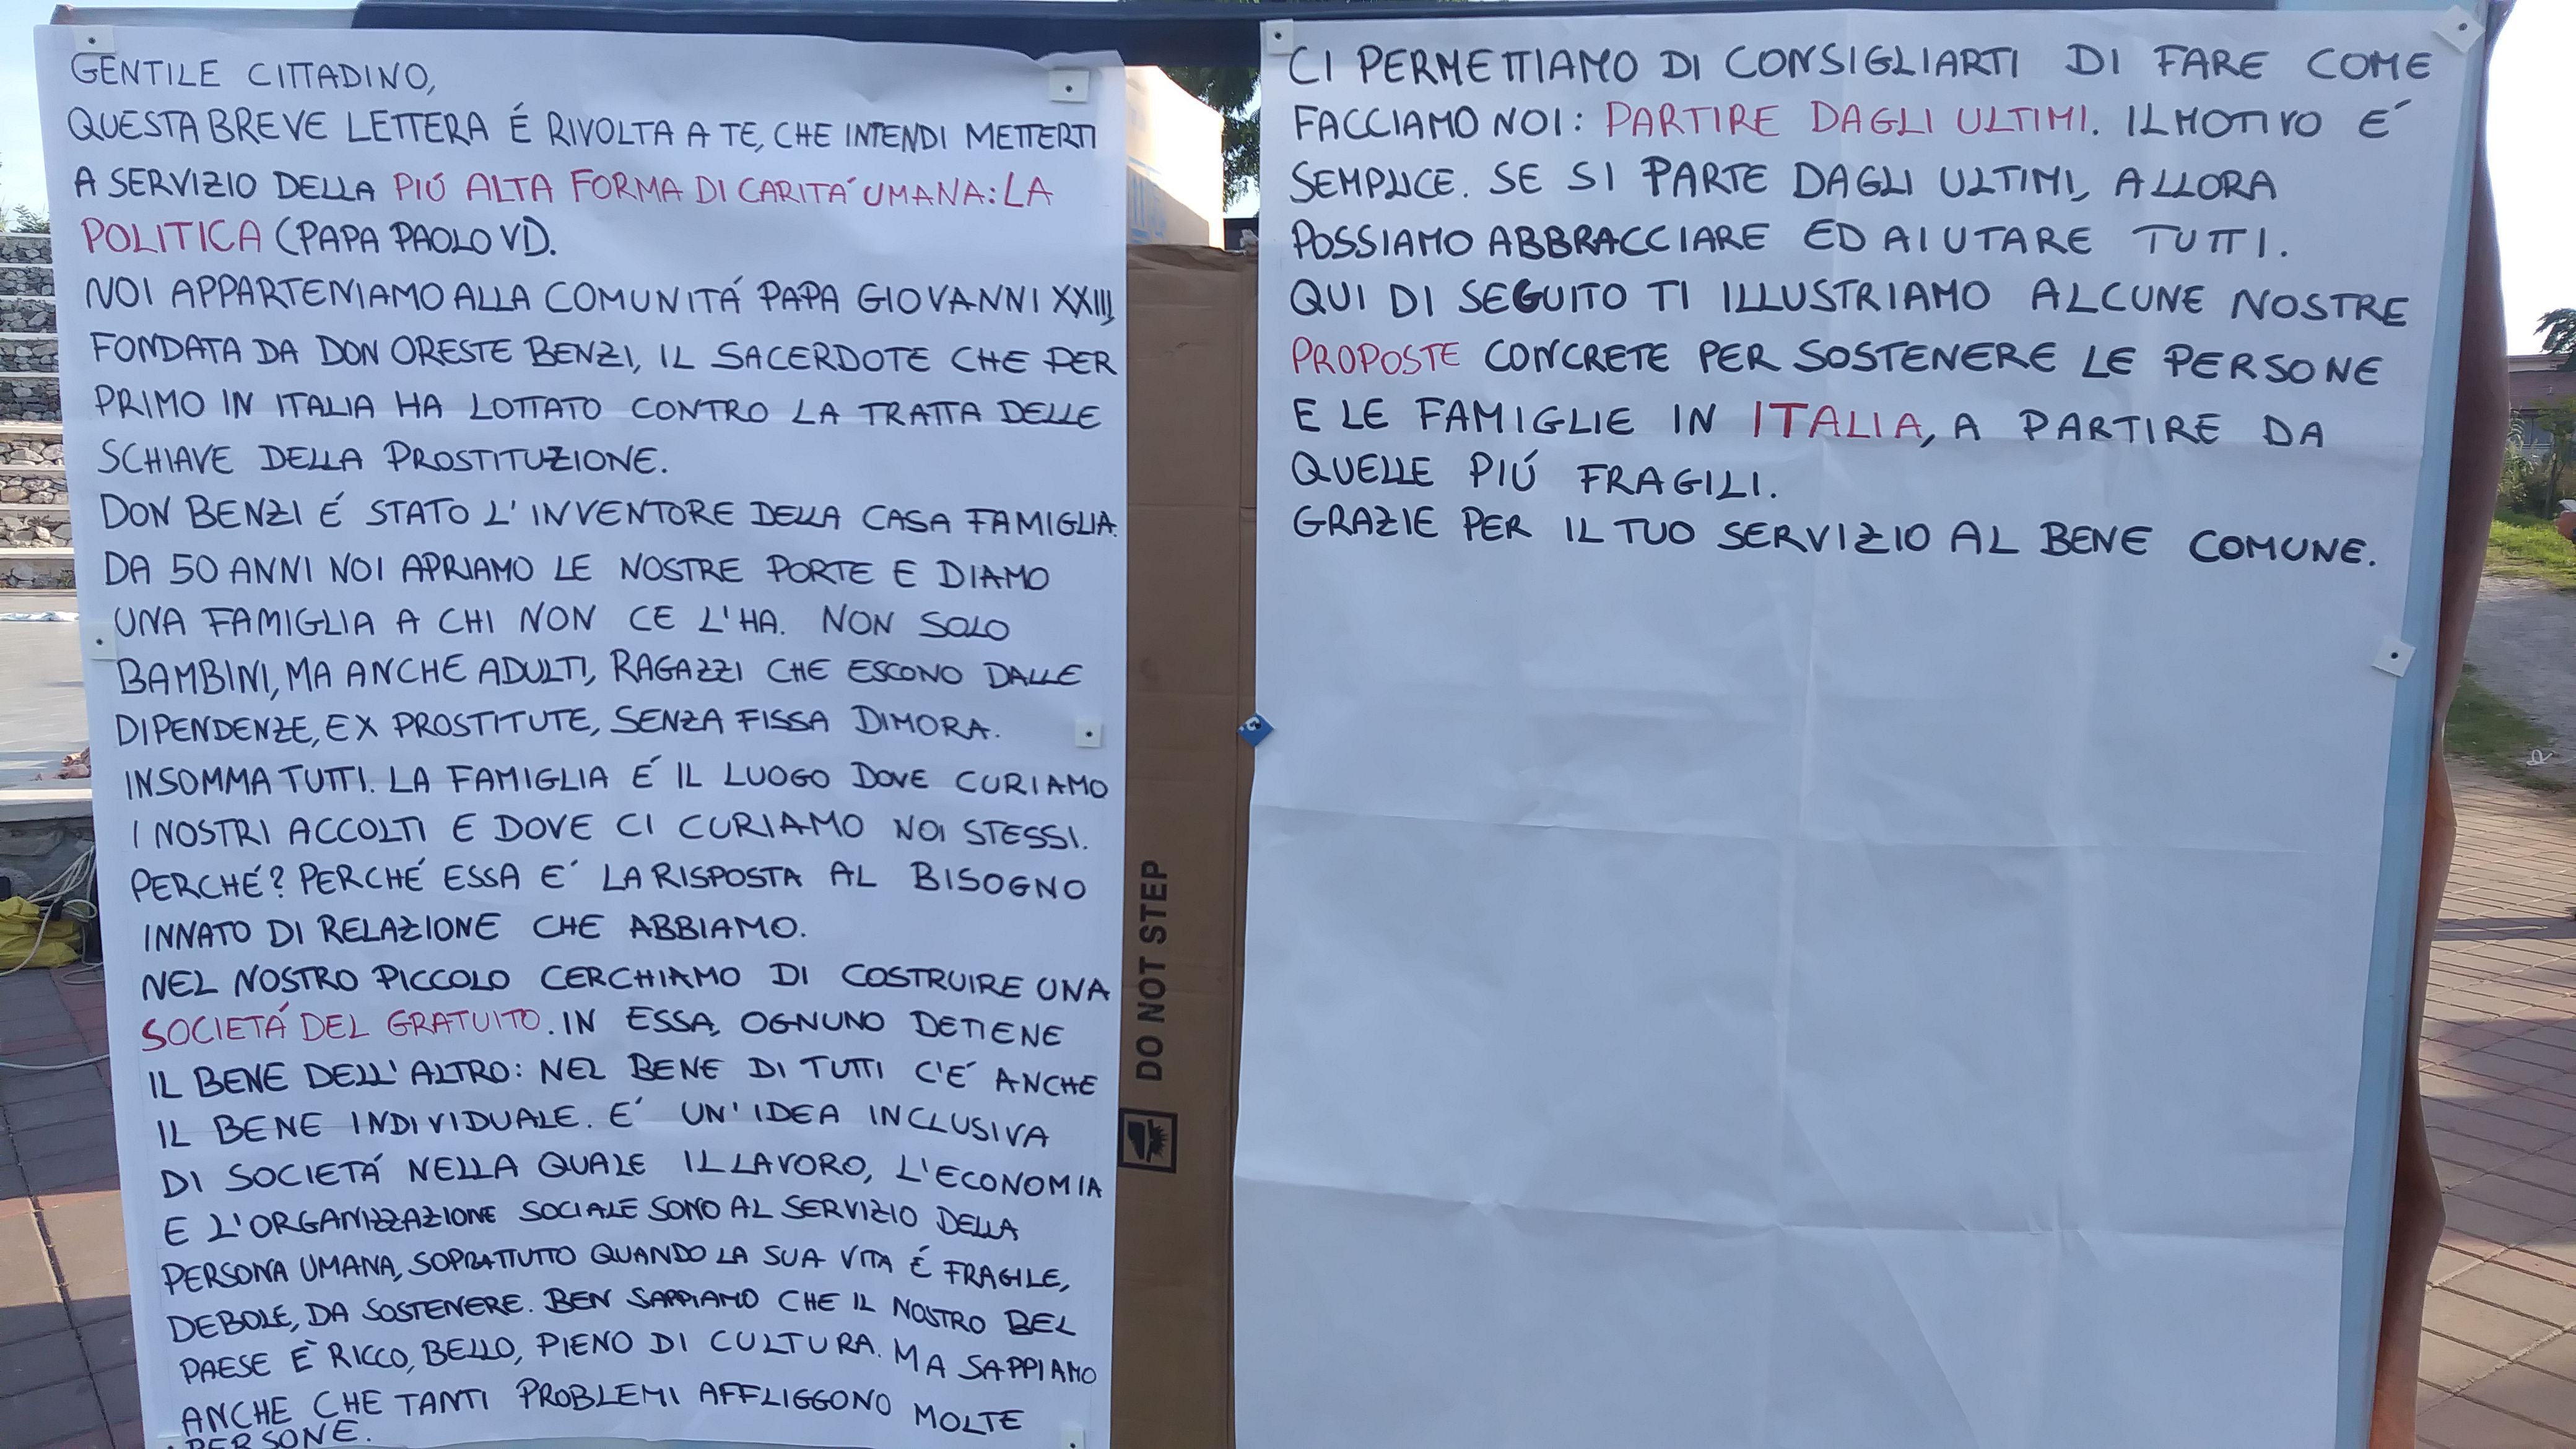 GENTILE CITTADINO,
QUESTA BREVE LETTERA É RIVOLTA A TE, CHE INTENDI METTERTI
A SERVIZIO DELLA PIÚ ALTA FORMA DI CARITÁ UMANA: LA
POLITICA (PAPA PAOLO VI).
NOI APPARTENIAMO ALLA COMUNITÁ PAPA GIOVANNI XXIII,
FONDATA DA DON ORESTE BENZI, IL SACERDOTE CHE PER
PRIMO IN ITALIA HA LOTTATO CONTRO LA TRATTA DELLE
SCHIAVE DELLA PROSTITUZIONE.
DON BENZI É STATO L'INVENTORE DELLA CASA FAMIGLIA.
DA 50 ANNI NOI APRIAMO LE NOSTRE PORTE E DIAMO
UNA FAMIGLIA A CHI NON CE L'HA. NON SOLO
BAMBINI, MA ANCHE ADULTI, RAGAZZI CHE ESCONO DALLE
DIPENDENZE, EX PROSTITUTE, SENZA FISSA DIMORA.
INSOMMA TUTTI. LA FAMIGLIA É IL LUOGO DOVE CURIAMO
I NOSTRI ACCOLTI E DOVE CI CURIAMO NOI STESSI.
PERCHÉ? PERCHÉ ESSA E´ LA RISPOSTA AL BISOGNO
INNATO DI RELAZIONE CHE ABBIAMO.
NEL NOSTRO PICCOLO CERCHIAMO DI COSTRUIRE UNA
SOCIETÁ DEL GRATUITO. IN ESSA, OGNUNO DETIENE
IL BENE DELL'ALTRO: NEL BENE DI TUTTI C'É ANCHE
IL BENE INDIVIDUALE. E´ UN'IDEA INCLUSIVA
DI SOCIETÁ NELLA QUALE IL LAVORO, L'ECONOMIA
E L'ORGANIZZAZIONE SOCIALE SONO AL SERVIZIO DELLA
PERSONA UMANA, SOPRATTUTTO QUANDO LA SUA VITA É FRAGILE,
DEBOLE, DA SOSTENERE. BEN SAPPIAMO CHE IL NOSTRO BEL
PAESE È RICCO, BELLO, PIENO DI CULTURA. MA SAPPIAMO
ANCHE CHE TANTI PROBLEMI AFFLIGGONO MOLTE
PERSONE.
DO NOT STEP
CI PERMETTIAMO DI CONSIGLIARTI DI FARE COME
FACCIAMO NOI: PARTIRE DAGLI ULTIMI. IL MOTIVO E´
SEMPLICE. SE SI PARTE DAGLI ULTIMI, ALLORA
POSSIAMO ABBRACCIARE ED AIUTARE TUTTI.
QUI DI SEGUITO TI ILLUSTRIAMO ALCUNE NOSTRE
PROPOSTE CONCRETE PER SOSTENERE LE PERSONE
E LE FAMIGLIE IN ITALIA, A PARTIRE DA
QUELLE PIÚ FRAGILI.
GRAZIE PER IL TUO SERVIZIO AL BENE COMUNE.